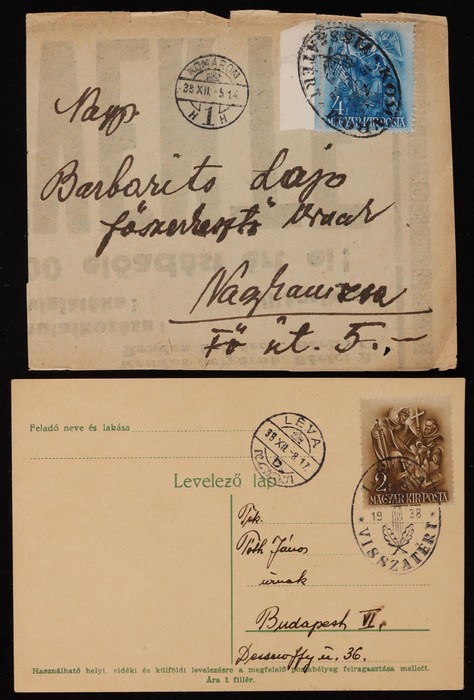 KOMÁROM
38 XII. -5.14
H 1 H
KASSA VISSZATÉRT
4
MAGYAR KIR POSTA
Nagys
Barbarits Lajos
főszerkesztő Urnak
Nagykanizsa
Fő út. 5.-
00 előadást ért el!
Feladó neve és lakása
LÉVA
38 XII. -8.17
2
MAGYAR KIR POSTA
Levelező lap
19 38
VISSZATÉRT
Tek.
Tóth János
úrnak
Budapest VI.
Dessewffy u. 36.
Használható helyi, vidéki és külföldi levelezésre a megfelelő postabélyeg felragasztása mellett.
Ára 1 fillér.